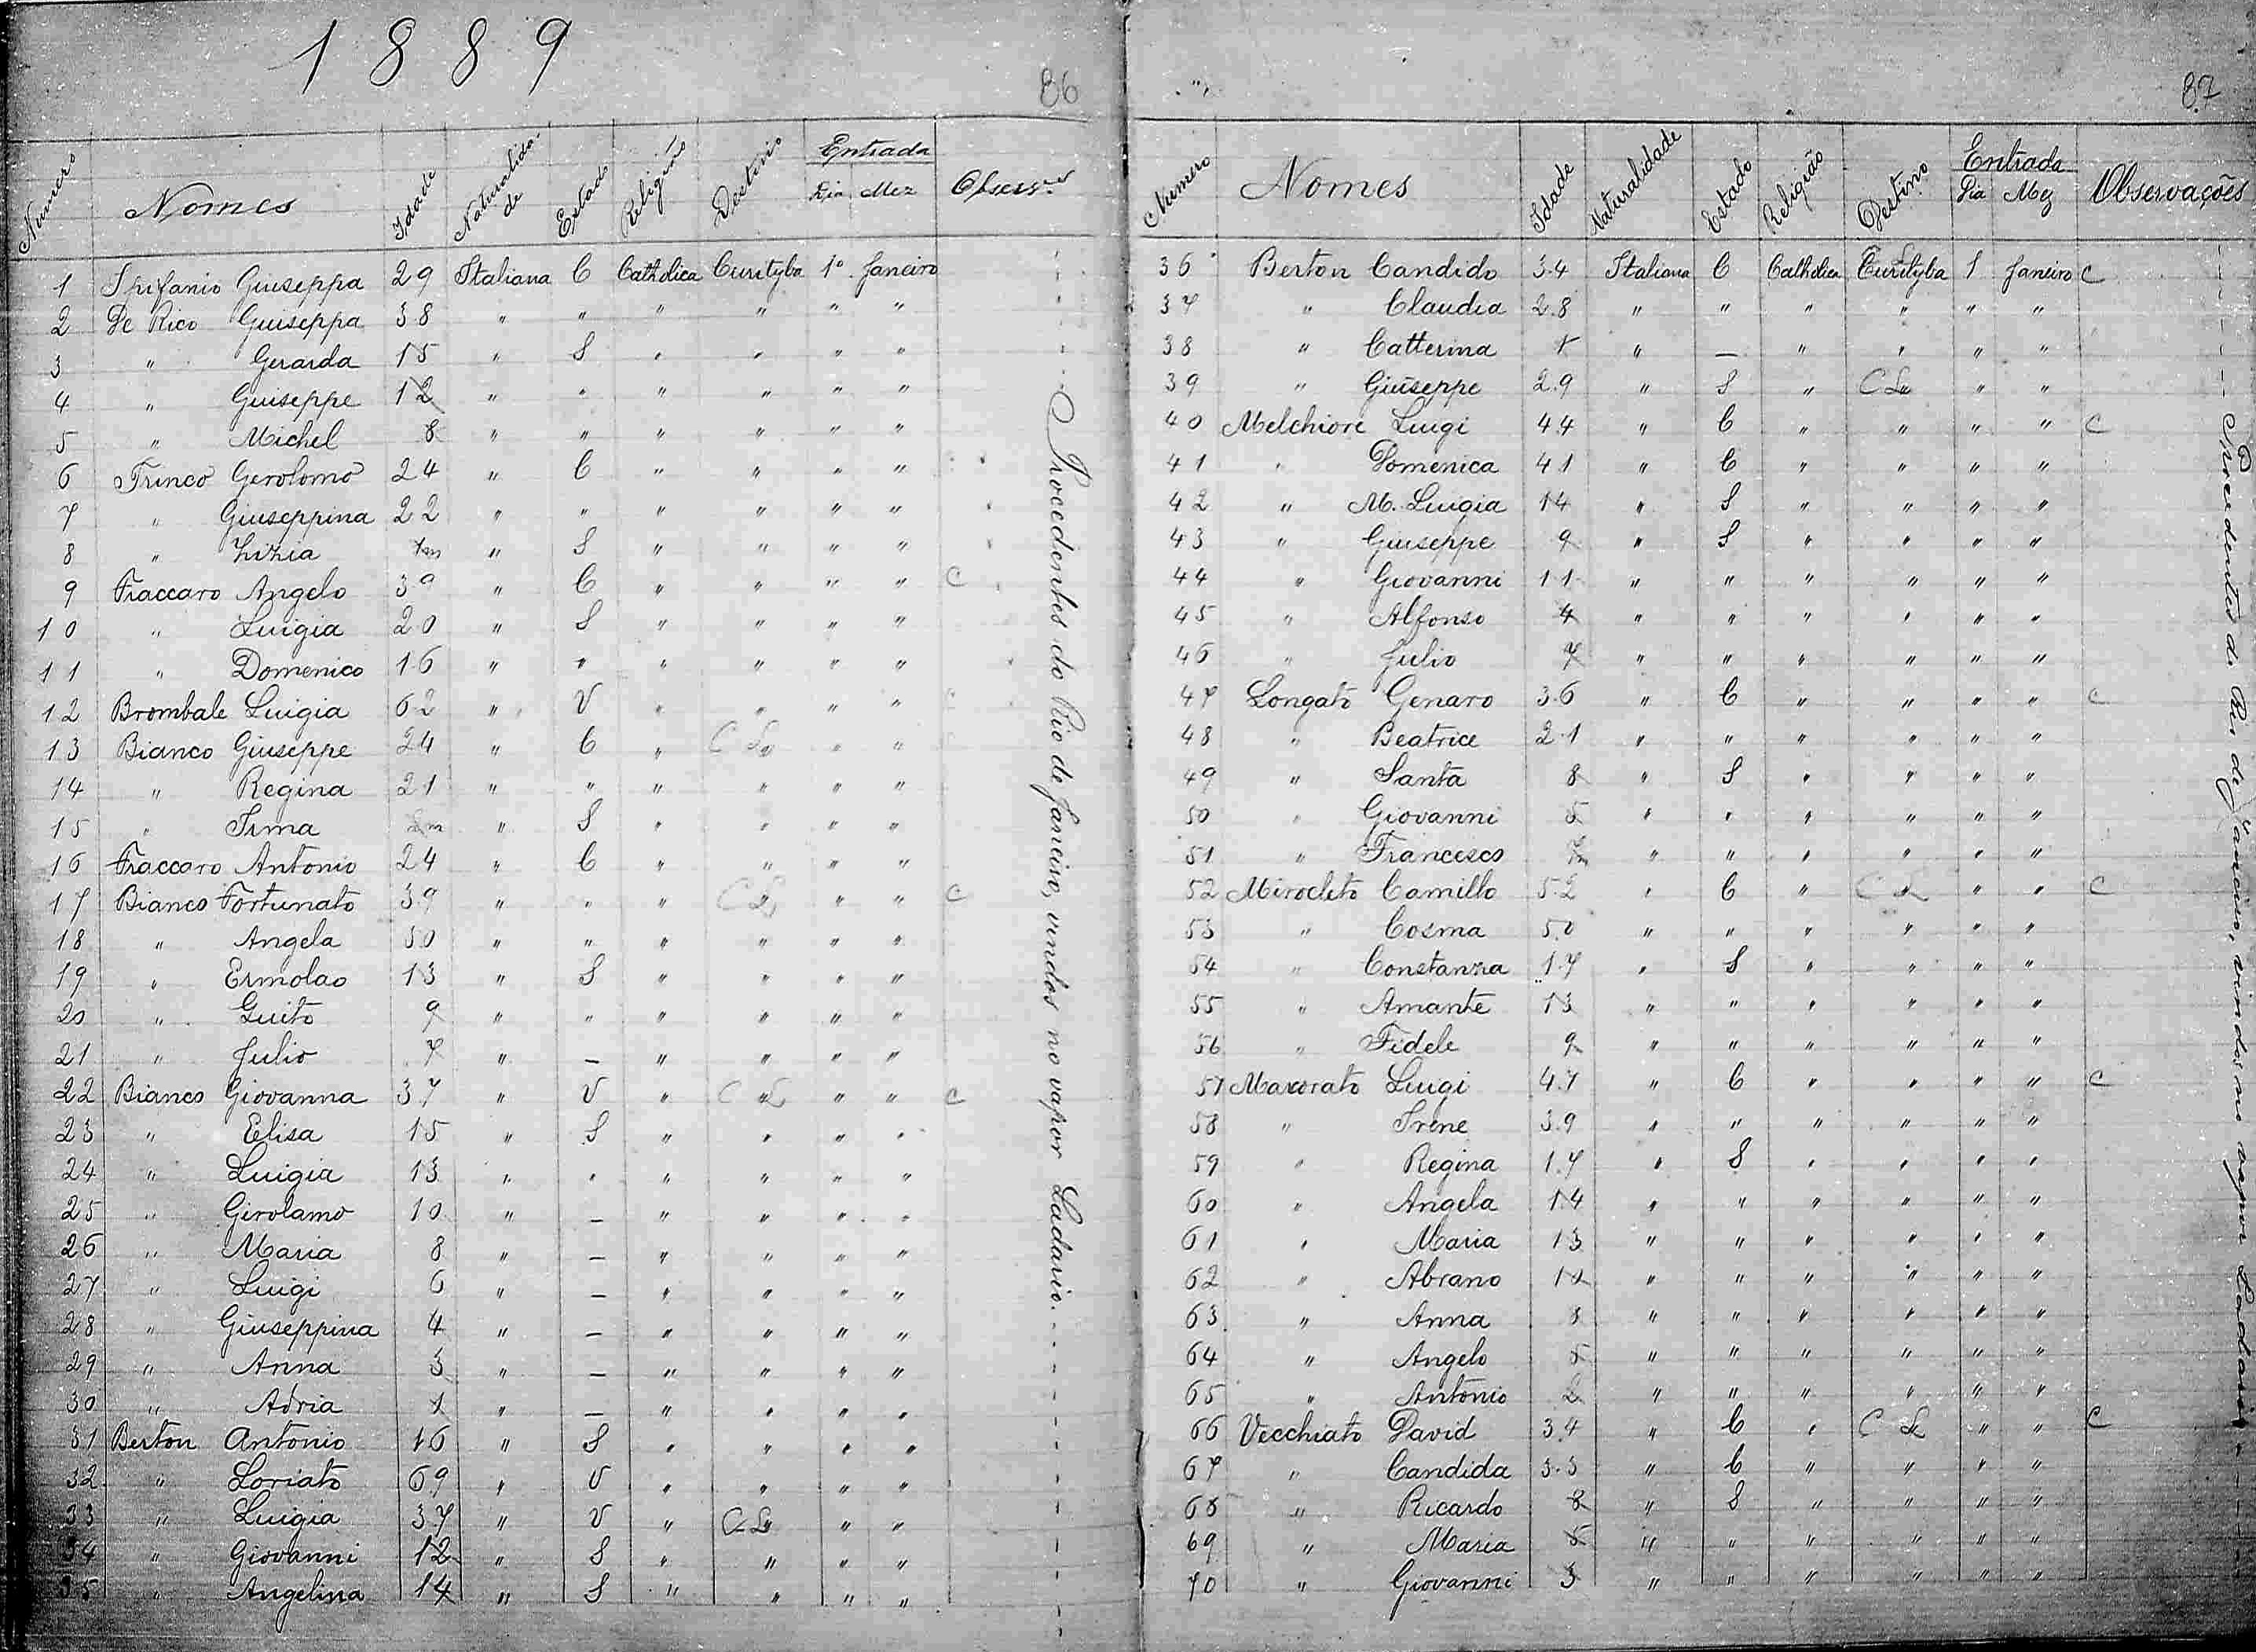 1889
86
Numero Nomes Idade Naturalida-de Estado Religião Destino Entrada Dia Mez Observ.es
1 Giuseppa 29 Italiana C Catholica Curityba 1º Janeiro
2 De Rico Giuseppa 38 " " " " " "
3 " Gerarda 15 " S " " " "
4 " Giuseppe 12 " " " " " "
5 " Michel 8 " " " " " "
6 Trinco Gerolomo 24 " C " " " "
7 " Giuseppina 22 " " " " " "
8 " " S " " " "
9 Fraccaro Angelo 39 " C " " " " C
10 " Luigia 20 " S " " " "
11 " Domenico 16 " " " " " "
12 Brombale Luigia 62 " V " " " " C
13 Bianco Giuseppe 24 " C " C L " "
14 " Regina 21 " " " " " "
15 " Irma " S " " " "
16 Fraccaro Antonio 24 " C " " " "
17 Bianco Fortunato 39 " " " C L " " C
18 " Angela 50 " " " " " "
19 " Ermolao 13 " S " " " "
20 " Guito 9 " " " " " "
21 " Julio 7 " — " " " "
22 Bianco Giovanna 37 " V " C L " " C
23 " Elisa 15 " S " " " "
24 " Luigia 13 " " " " " "
25 " Girolamo 10 " — " " " "
26 " Maria 8 " — " " " "
27 " Luigi 6 " — " " " "
28 " Giuseppina 4 " — " " " "
29 " Anna 3 " — " " " "
30 " Adria 1 " — " " " "
31 Berton Antonio 16 " S " " " "
32 " Loriato 69 " V " " " "
33 " Luigia 37 " V " C L " "
34 " Giovanni 12 " S " " " "
35 " Angelina 14 " S " " " "
Procedentes do Rio de Janeiro, vindos no vapor Ladario.
87
Numero Nomes Idade Naturalidade Estado Religião Destino Entrada Dia Mez Observações
36 Berton Candido 34 Italiana C Catholica Curityba 1 Janeiro C
37 " Claudia 28 " " " " " "
38 " Catterina " — " " " "
39 " Giuseppe 29 " S " C L " "
40 Melchiori Luigi 44 " C " " " " C
41 " Domenica 41 " C " " " "
42 " M. Luigia 14 " S " " " "
43 " Giuseppe 9 " S " " " "
44 " Giovanni 11 " " " " " "
45 " Alfonso 4 " " " " " "
46 " Julio 7 " " " " " "
47 Longato Genaro 36 " C " " " " C
48 " Beatrice 21 " " " " " "
49 " Santa 8 " S " " " "
50 " Giovanni 5 " " " " " "
51 " Francesco " " " " " "
52 Mirocleto Camillo 52 " C " C L " " C
53 " Cosma 50 " " " " " "
54 " Constanza 17 " S " " " "
55 " Amante 13 " " " " " "
56 " Fidele 9 " " " " " "
57 Luigi 47 " C " " " " C
58 " Irene 39 " " " " " "
59 " Regina 17 " S " " " "
60 " Angela 14 " " " " " "
61 " Maria 13 " " " " " "
62 " Abrano " " " " " "
63 " Anna 8 " " " " " "
64 " Angelo 5 " " " " " "
65 " Antonio 2 " " " " " "
66 Vecchiato David 34 " C " C L " " C
67 " Candida 33 " C " " " "
68 " Ricardo 8 " S " " " "
69 " Maria 5 " " " " " "
70 " Giovanni 3 " " " " " "
Procedentes do Rio de Janeiro, vindos no vapor Ladario